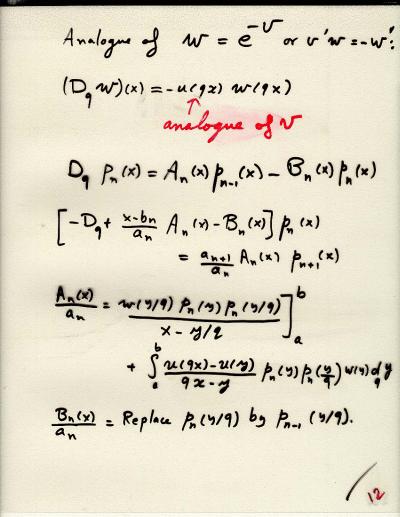 Analogue of w = e^{-v} or v'w = -w':
(D_q w)(x) = -u(qx) w(qx)
↑
analogue of v
D_q p_n(x) = A_n(x) p_{n-1}(x) - B_n(x) p_n(x)
[-D_q + \frac{x-b_n}{a_n} A_n(x) - B_n(x)] p_n(x)
= \frac{a_{n+1}}{a_n} A_n(x) p_{n+1}(x)
\frac{A_n(x)}{a_n} = \frac{w(y/q) p_n(y) p_n(y/q)}{x - y/q} ]_a^b
+ \int_a^b \frac{u(qx) - u(y)}{qx - y} p_n(y) p_n(\frac{y}{q}) w(y) d_q y
\frac{B_n(x)}{a_n} = Replace p_n(y/q) by p_{n-1}(y/q).
12